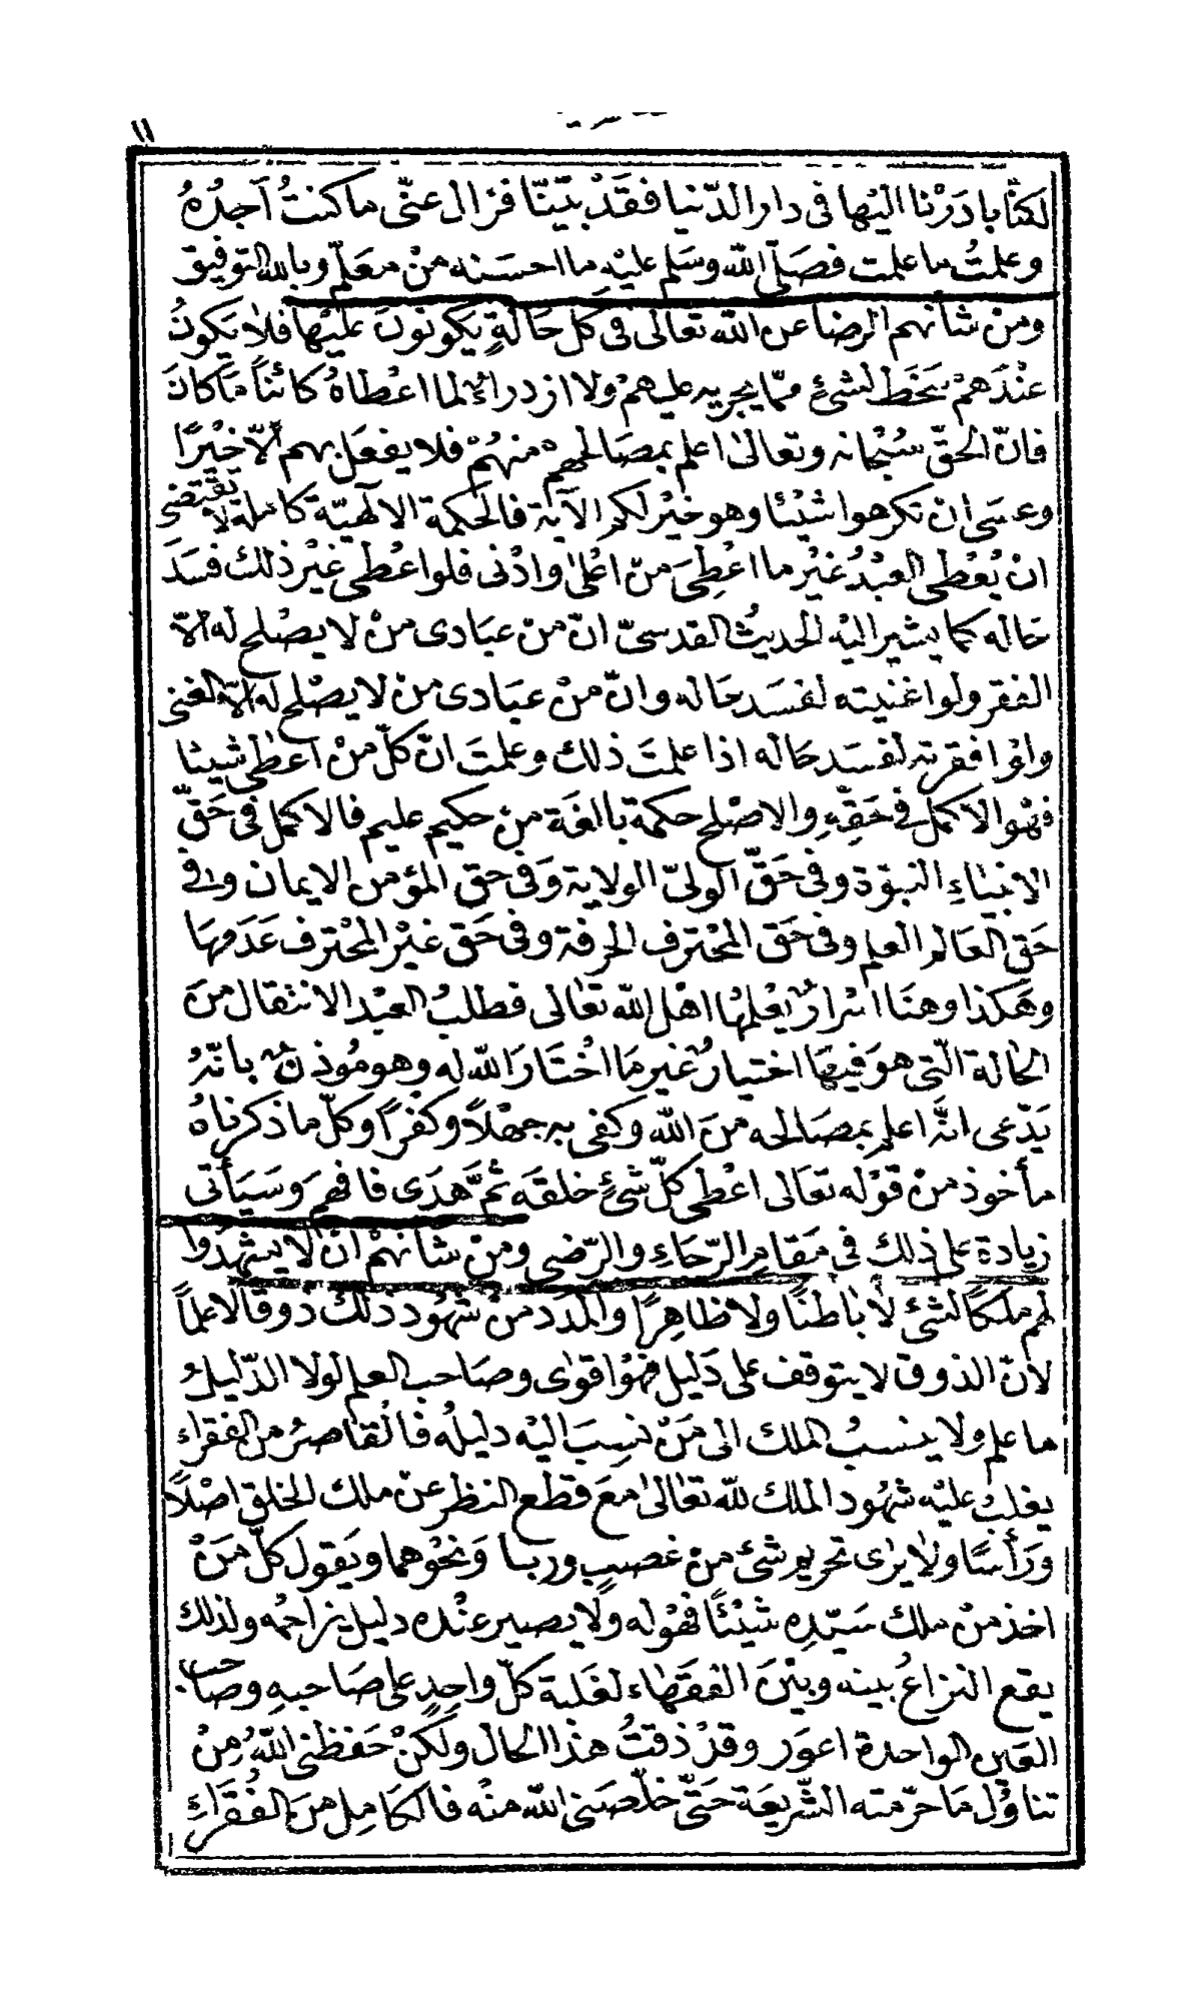 ١١
لَكنّا بادَرْنا اليْها فى دار الدّنيا فقَدْ بَيَّنّا فزال عنّى ما كنتُ آجِدُهُ
وعلمتُ ما علمت فصَلّى الله وسَلم عليْهِ ما احسَنه منْ معَلّم وبالله التوفيق
ومنْ شانهم الرضا عن الله تعالى فى كل حَالةٍ يَكونونَ عليْها فلا يَكونُ
عنْدَهمْ سَخَط لشئ ممّا يجريه عليهمْ ولا ازدراءٌ لما اعْطاهُ كائناً مَا كانَ
فانّ الحَقّ سُبْحانه وتعالى اعلم بمصَالحهم منهُمْ فلا يفعَل بهم الّا خيْرًا
وعسَى انْ تكرهوا شيْئا وهو خيْر لكم الآية فالحكمة الالٓهيّة كاملة لا تقتضى
انْ يُعْطى العبْدُ غيْر ما اعْطِىَ منْ اعْلى وادْنى فلو اعْطى غيْر ذلك فسَدَ
حَاله كما يشير اليْه الحديثُ القدسىّ انّ منْ عبَادى منْ لا يصْلح له الّا
الفقر ولو اغنيته لفسَد حَاله وانّ منْ عبَادى من لا يصْلح له الّا الغنى
ولوْ افقرته لفسَد حَاله اذا علمتَ ذلك وعلمتَ انّ كلّ منْ اعطى شيئا
فهْو الاكمل فى حَقِّهِ والاصْلح حكمة بالغة منْ حكيم عليم فالاكمل فى حَقّ
الانبيَاءِ النبوّة وفى حَقّ الولىّ الولاية وَفى حق المؤمن الايمان وفى
حَقِ العَالم العلم وفى حَق المحْترف الحرفة وفى حَق غيْر المحْترف عَدَمهَا
وهَكذا وهنَا اسْرارٌ يعْلمهُا اهْل الله تعَالى فطلبُ العبْد الانتقال منَ
الحَالة الّتى هوَ فيهَا اختيارٌ غير مَا اخْتَارَ الله له وهو مُوذنٌ بانّهُ
يَدّعى انّهُ اعلم بمصَالحه منَ الله وكفى به جهْلاً وكفْراً وكلّ ما ذكرناهُ
مأخوذ منْ قوْله تعَالى اعْطى كلّ شئٍ خلقَه ثمّ هَدَى فافهمَ وَسَيَأتى
زيادة على ذلك فى مَقامِ الرّجَاءِ والرّضى ومنْ شانهمْ انْ لا يشهَدُوا
لهم ملكًا لشئ لا بَاطنًا ولا ظاهِرًا والمدَد منْ شهُود ذلك ذوقًا لا علماً
لأنّ الذوق لا يتوقف على دَليل فهْو اقوٰى وصَاحب العلم لولا الدّليلُ
ما علم ولا ينسبُ الملك الى مَنْ نسِبَ اليْه دليلهُ فالقاصرُ من الفقراء
يغلبُ عليْه شهُود الملك لله تعَالى معَ قطعِ النظر عنْ ملك الخلق اصْلاً
ورَأسًا ولا يرٰى تحريم شئ منْ غصبٍ وربا وَنحْوهما ويَقول كلّ منَ
اخذ منْ ملك سَيّدهِ شيْئًا فهْو له ولا يصير عنْده دليل يزاحمُه ولذلك
يقع النزاعُ بينه وبيْنَ الفقهَاء لغَلبَة كلّ واحِدٍ على صَاحبهِ وصَاحب
العَين الواحدة اعوَر وقدْ ذقتُ هذا الحَال ولكنْ حَفظنى اللهُ منْ
تناوُل مَا حرّمته الشّريعَة حَتّى خلّصَنى الله منْه فالكامِل منَ الفُقَرَاءِ